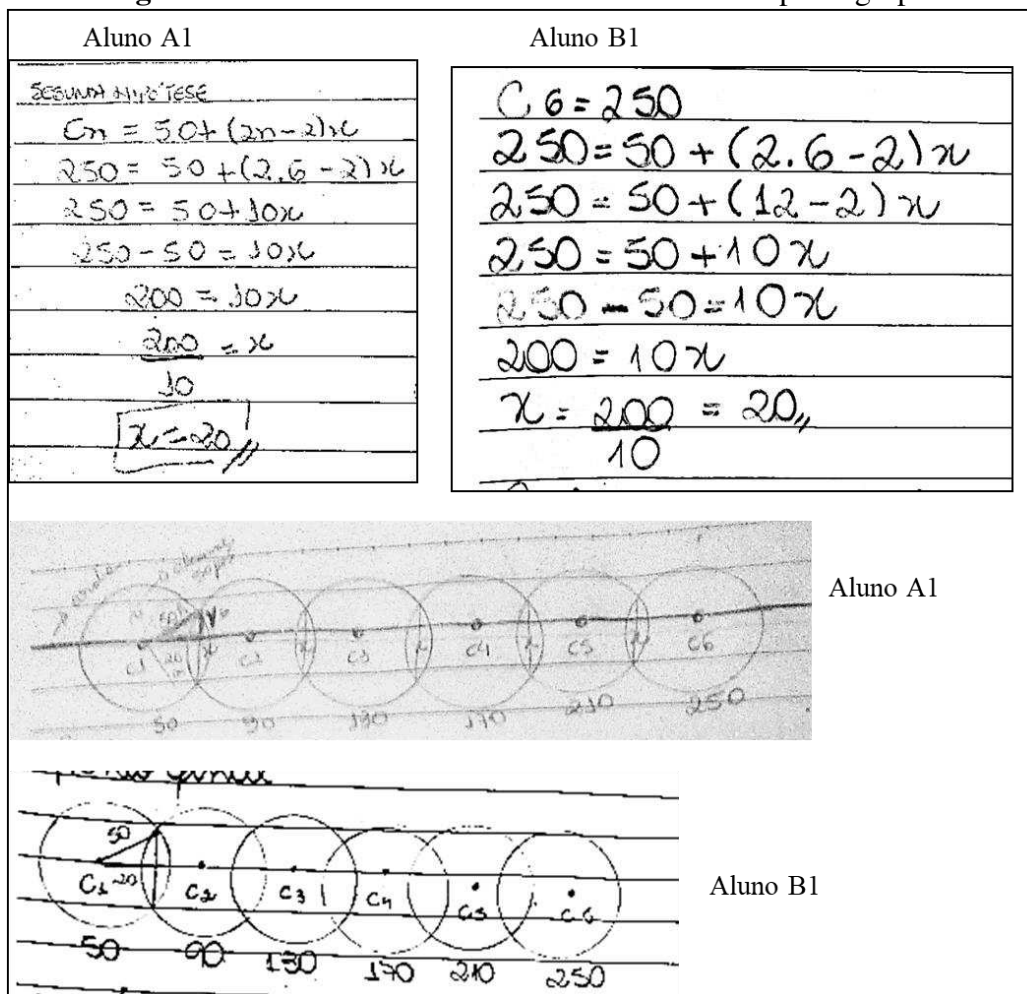 Aluno A1
SEGUNDA HIPÓTESE
Cn = 50+(2n-2)x
250 = 50+(2.6-2)x
250 = 50+10x
250-50 = 10x
200 = 10x
200 = x
10
x=20//
Aluno B1
C6=250
250=50+(2.6-2)x
250=50+(12-2)x
250=50+10x
250-50=10x
200=10x
x=200=20,,
10
Aluno A1
50
20
x x x x x
C1 C2 C3 C4 C5 C6
50 90 130 170 210 250
Aluno B1
50
20
C1 C2 C3 C4 C5 C6
50 90 130 170 210 250